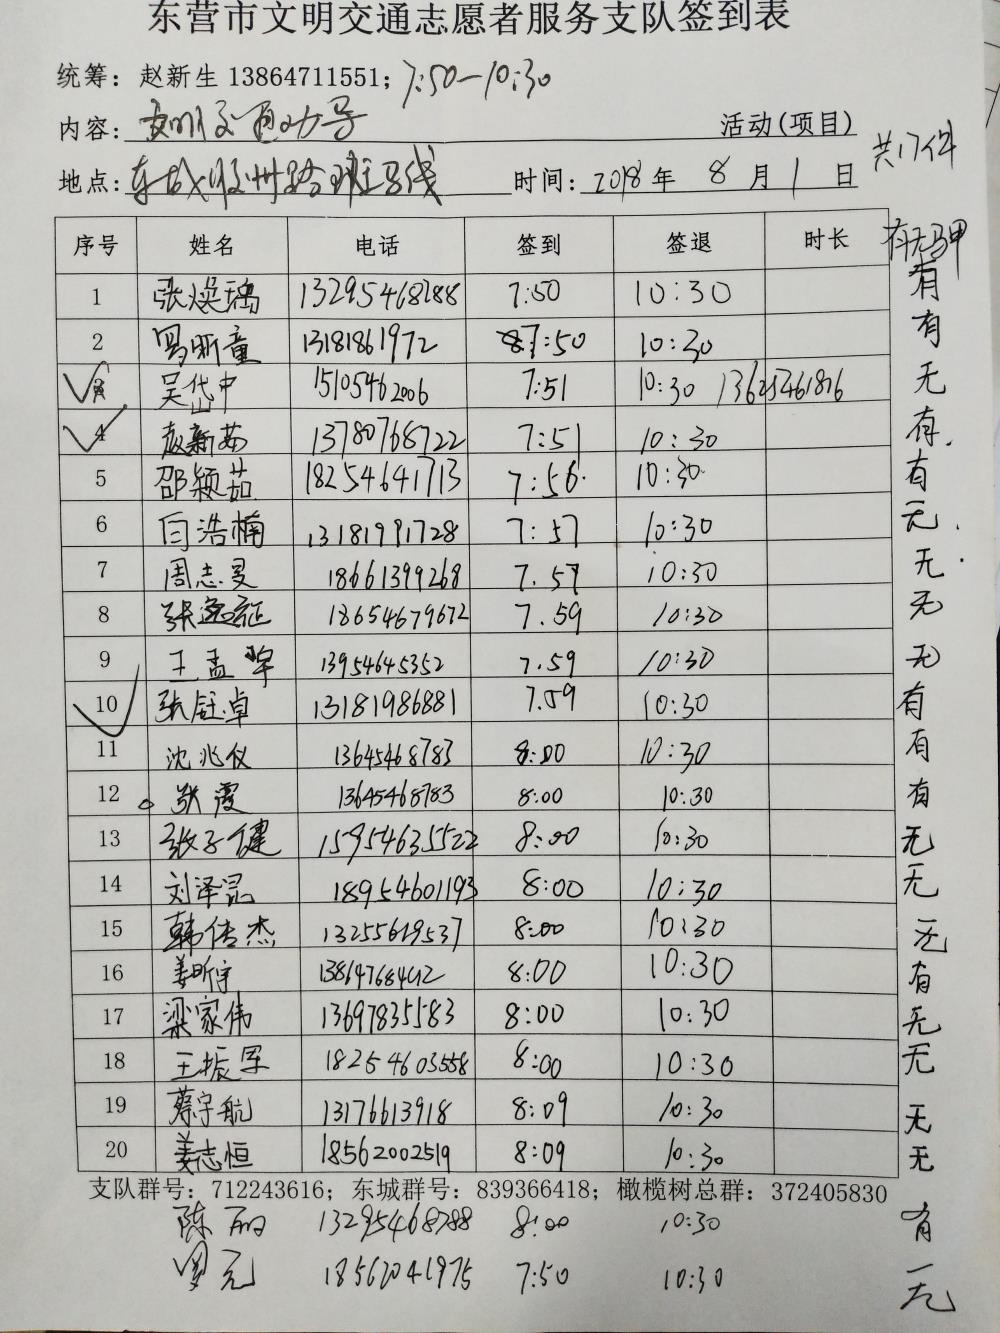 东营市文明交通志愿者服务支队签到表
统筹：赵新生 13864711551；7:50—10:30
内容：文明交通劝导 活动(项目)
共17件
地点：东城胶州路斑马线 时间：2018年 8 月 1 日
序号 姓名 电话 签到 签退 时长 有无马甲
1 张焕瑀 13295468288 7:50 10:30 有
2 昕童 13181861972 7:50 10:30 有
3 吴岱中 15105462006 7:51 10:30 13625461816 无
4 赵新茹 13780768722 7:51 10:30 有
5 邵颖茹 18254641713 7:56 10:30 有
6 闫浩楠 13181991728 7:57 10:30 无
7 周志旻 18661399268 7.57 10:30 无
8 张逸 18654679672 7.59 10:30 无
9 王孟 13954645352 7.59 10:30 无
10 张钰卓 13181986881 7.59 10:30 有
11 沈兆仪 13645468783 8:00 10:30 有
12 张霞 13645468783 8:00 10:30 有
13 张子健 15954635522 8:00 10:30 无
14 刘泽昆 18954601193 8:00 10:30 无
15 韩传杰 13255619537 8:00 10:30 无
16 姜昕宇 8:00 10:30 有
17 梁家伟 13697835583 8:00 10:30 无
18 王振军 18254603558 8:00 10:30 无
19 蔡宇航 13176613918 8:09 10:30 无
20 姜志恒 18562002519 8:09 10:30 无
支队群号：712243616；东城群号：839366418；橄榄树总群：372405830
陈丽 13295468788 8:00 10:30 有
罗元 18562041975 7:50 10:30 无